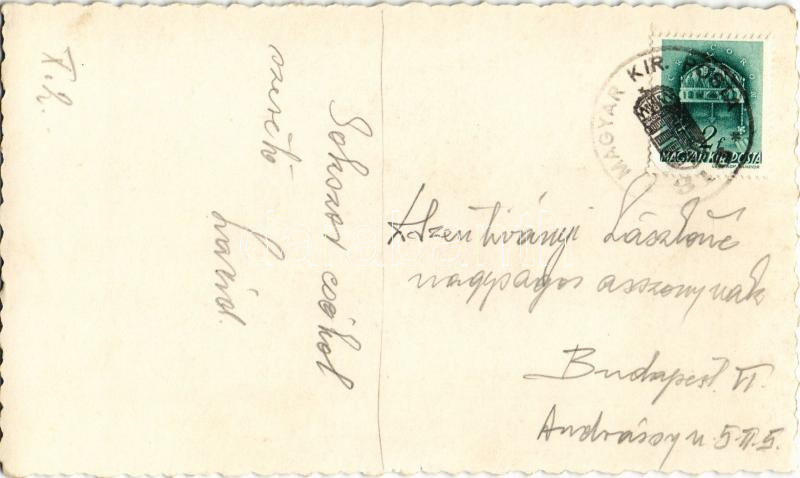 K.L.
Sokszor csókol
szerető
MAGYAR KIR. POSTA
2f
MAGYAR KIR. POSTA
Szentiványi Lászlóné
nagyságos asszonynak
Budapest. VI.
Andrássy u. 5. II. 5.